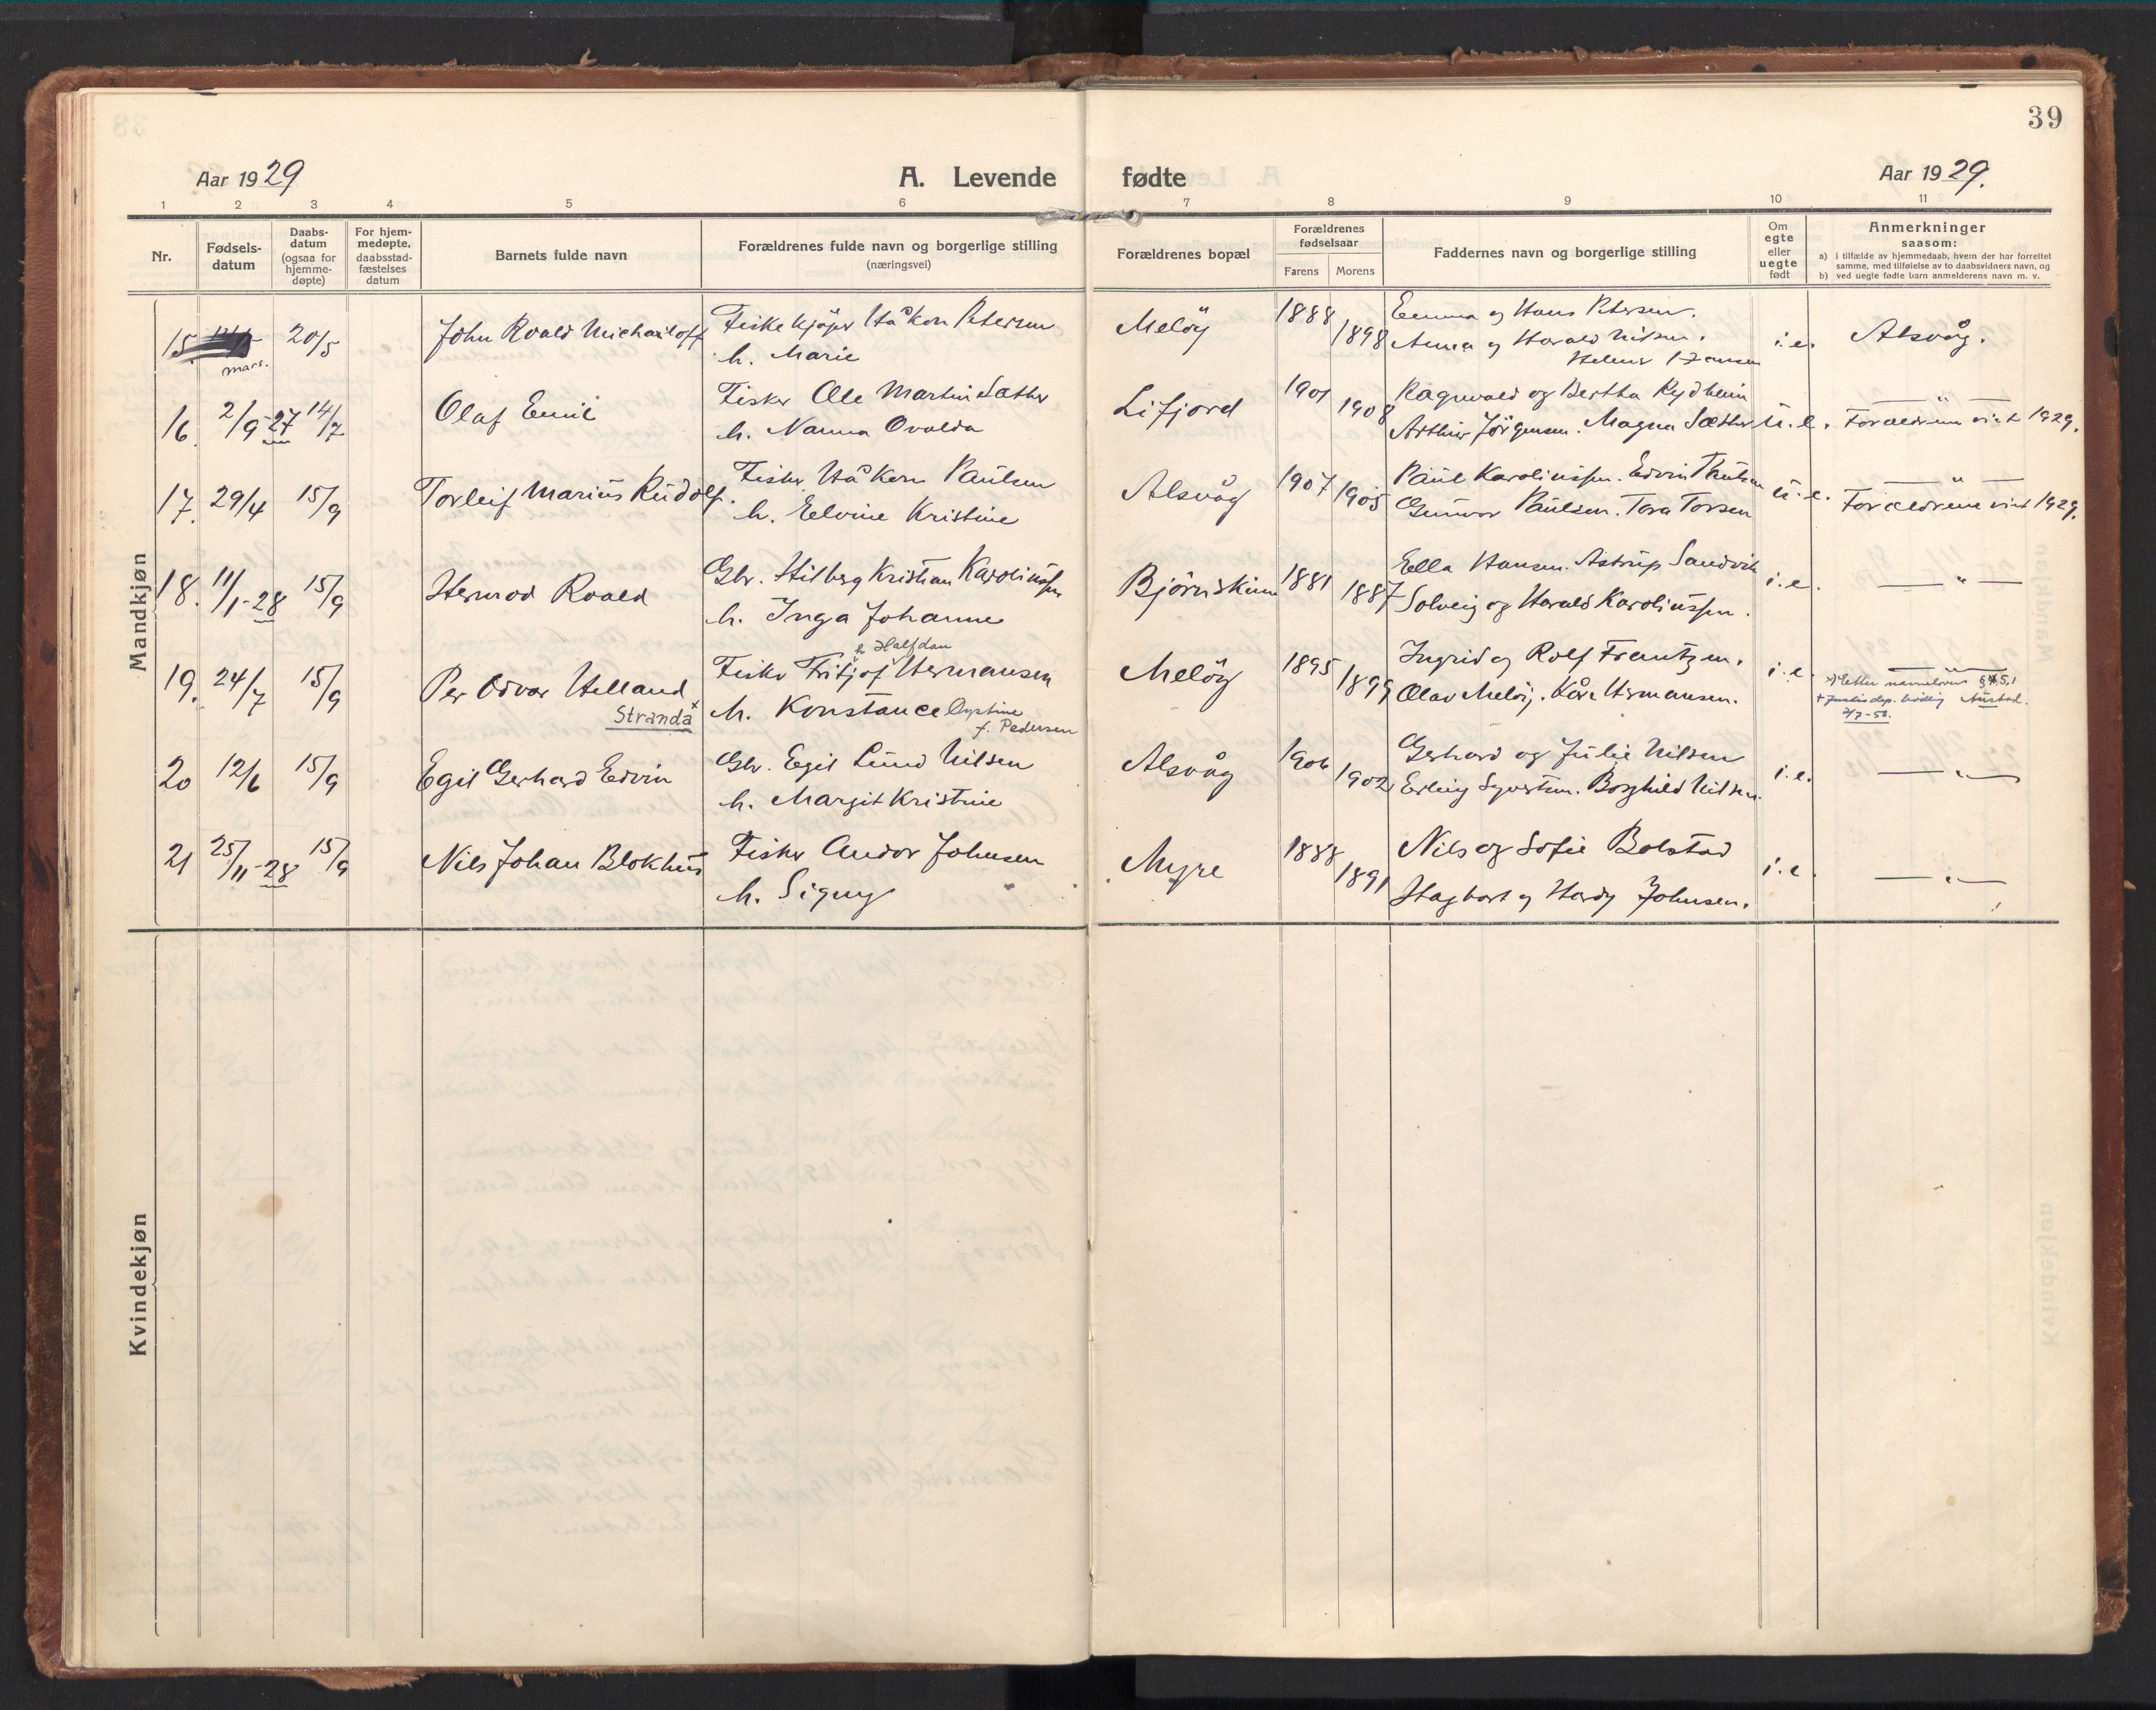 39
Aar 1929
A. Levende
fødte
Aar 1929.
1 2 3 4 5 6 7 8 9 10 11
Nr.
Fødsels-
datum
Daabs-
datum
(ogsaa for
hjemme-
døpte)
For hjem-
medøpte,
daabsstad-
fæstelses
datum
Barnets fulde navn
Forældrenes fulde navn og borgerlige stilling
(næringsvei)
Forældrenes bopæl
Forældrenes
fødselsaar
Farens Morens
Faddernes navn og borgerlige stilling
Om
egte
eller
uegte
født
Anmerkninger
saasom:
a) i tilfælde av hjemmedaab, hvem der har forrettet
samme, med tilføielse av to daabsvidners navn, og
b) ved uegte fødte barn anmelderens navn m. v.
Mandkjøn
15 mars. 20/5 John Roald Michailoff Fiskekjøper Håkon Petersen Meløy 1888 Emma og Hans Petersen.
h. Marie 1898 Anna og Harald Nilsen. i.e. Alsvåg.
16. 2/9-27 14/7 Olaf Emil Fisker Ole Martin Sæther Lifjord 1901 Ragnvald og Bertha Rydheim — " —
h. Nanna Ovalda 1908 Arthur Jörgensen. Magna Sæther u.e. Forældrene viet 1929.
17. 29/4 15/9 Torleif Marius Rudolf. Fisker Håkon Paulsen Alsvåg 1907 Paul Karolinssen. Edvin Paulsen u.e. — " —
h. Elvine Kristine 1905 Gunvor Paulsen. Tora Torsen Forældrene viet 1929.
18. 11/1-28 15/9 Hermod Roald Gbr. Hilberg Kristian Karolinssen Björnskinn 1881 Ella Hansen. Astrup Sandvik i.e. — " —
h. Inga Johanne 1887 Solveig og Harald Karolinssen.
19. 24/7 15/9 Per Odvar Helland Fisker Fritjof Halfdan Hermansen Meløy 1895 Ingrid og Rolf Frantzen. i.e. — " —
Stranda x h. Konstance Oystine f. Pedersen 1899 Olav Meløy. Kåre Hermansen.
x) Etter navneloven
+ Justisdep. bevilling
2/7-58.
20 12/6 15/9 Egil Gerhard Edvin Gbr. Egil Lund Nilsen Alsvåg 1906 Gerhard og Julie Nilsen i.e. — " —
h. Margit Kristine 1902 Erling Syvertsen. Borghild Nilsen.
21 25/11-28 15/9 Nils Johan Blokhus Fisker Andor Johnsen Myre 1888 Nils og Sofie Bolstad i.e. — " —
h. Signy 1891 Hagbart og Hardy Johnsen.
Kvindekjøn